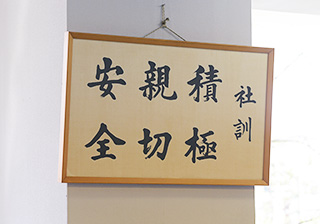 社訓
積極
親切
安全